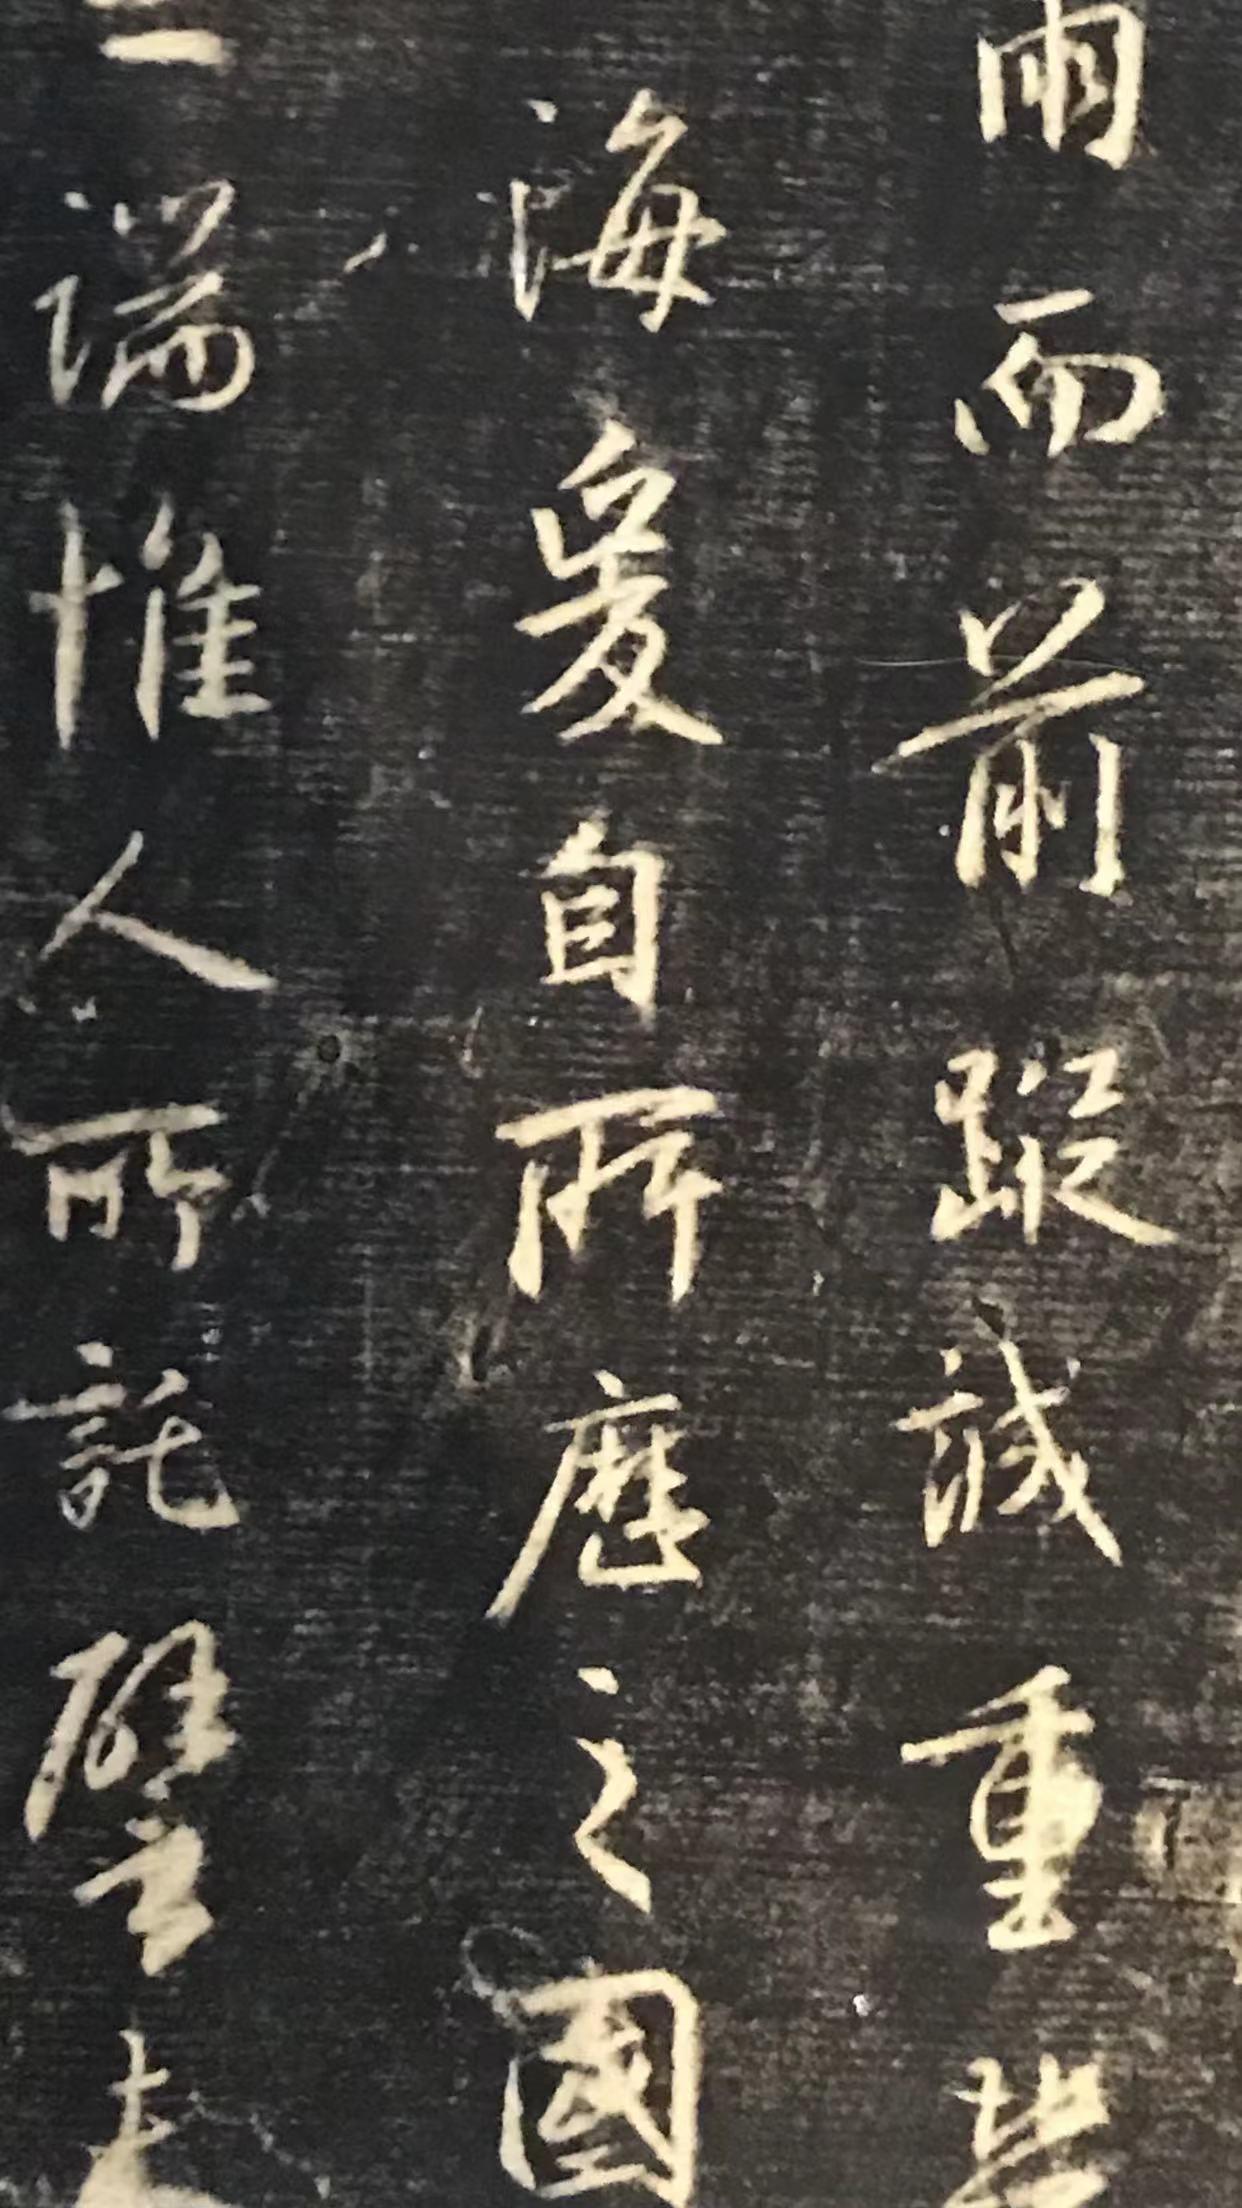 雨而前蹤誠重
海爰自所歷之國
端惟人所託譬夫